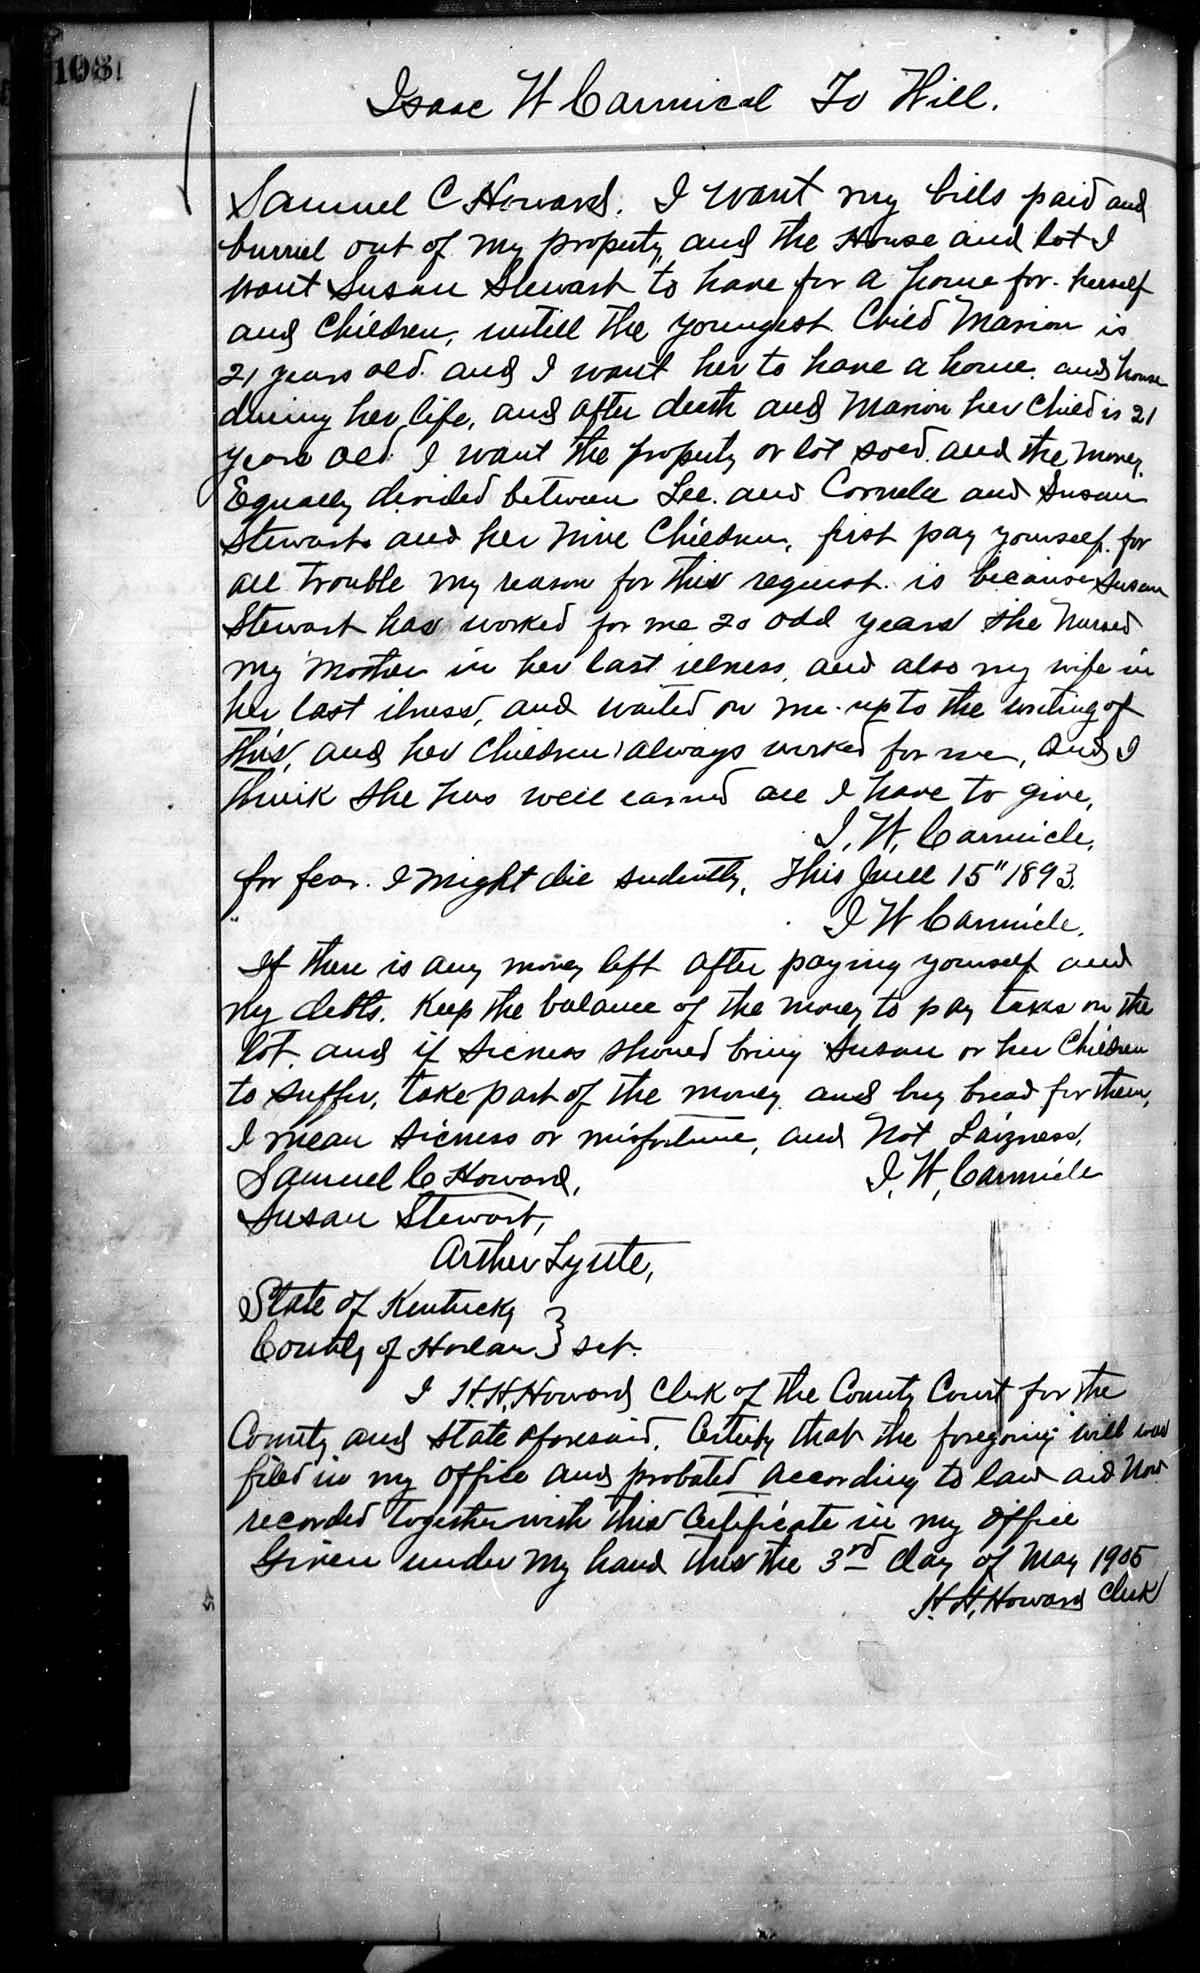 108
Isaac W Carmical To Will.
Samuel C Howard. I want my bills paid and
burriel out of my property, and the House and lot I
want Susan Stewart to have for a home for herself
and Children, untill the youngest Child Marion is
21 years old. and I want her to have a home. and house
during her life, and after deeth and Marion her Child is 21
years old. I want the property or lot sold. and the money.
Equally devided between Lee. and Cornela and Susan
Stewart. and her Nine Children, first pay yourself. for
all trouble my reason for this request. is because Susan
Stewart has worked for me 20 odd years she Nursed
my Mother in her last illness, and also my wife in
her last ilness, and waited on me up to the writing of
this, and her Children always worked for me, And I
think she has well earned all I have to give,
I. W. Carmicle,
for fear. I might die sudently, This June 15" 1893.
I W Carmicle.
If there is any money left after paying yourself and
my debts. Keep the balance of the money to pay taxes on the
lot. and if sicness should bring Susan or her Children
to suffer, take part of the money. and buy bread for them,
I mean sicness or misfortune, and Not Laizness.
Samuel C Howard, I, W, Carmicle
Susan Stewart,
Arther Lytte,
State of Kentucky
County of Harlan } sct.
I H. H. Howard Clerk of the County Court for the
County and State aforesaid. Certify that the foregoing will was
filed in my office and probated according to law and Now
recorded together with this Certificate in my office
Given under my hand this the 3rd day of May 1905
H. H. Howard Clerk